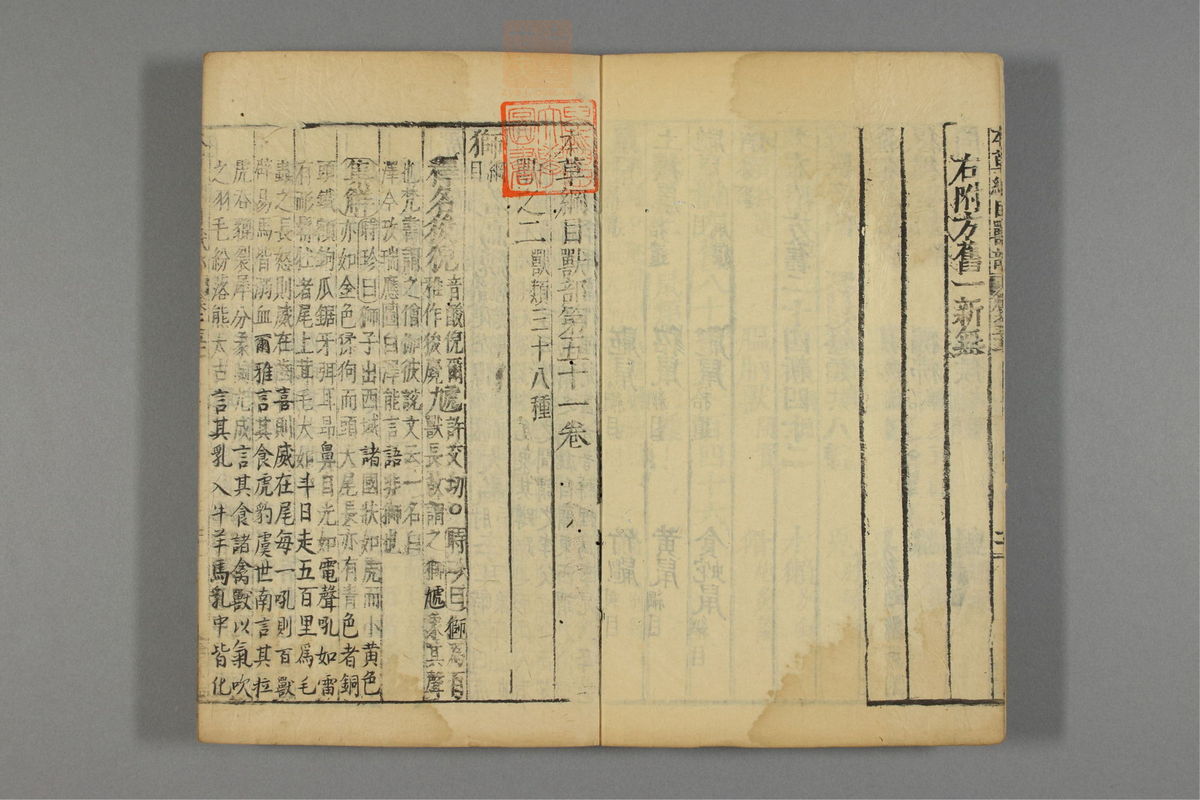 右附方舊一新無
本草綱目獸部第五十一卷
獸之二獸類三十八種
獅綱目
釋名狻猊音酸倪爾雅作狻麑虓許交切○時珍曰獅為百
獸長故謂之獅虓象其聲
也梵書謂之僧伽彼說文云一名白
澤今考瑞應圖白澤能言語非獅也
集解時珍曰獅子出西域諸國狀如虎而小黃色
亦如金色猱狗而頭大尾長亦有青色者銅
頭鐵額鉤爪鋸牙弭耳昂鼻目光如電聲吼如雷
有耏髯牡者尾上茸毛大如斗日走五百里爲毛
蟲之長怒則威在齒喜則威在尾每一吼則百獸
辟易馬皆溺血爾雅言其食虎豹虞世南言其拉
虎吞貔裂犀分象 言其食諸禽獸以氣吹
之羽毛紛落 言其乳入牛羊馬乳中皆化